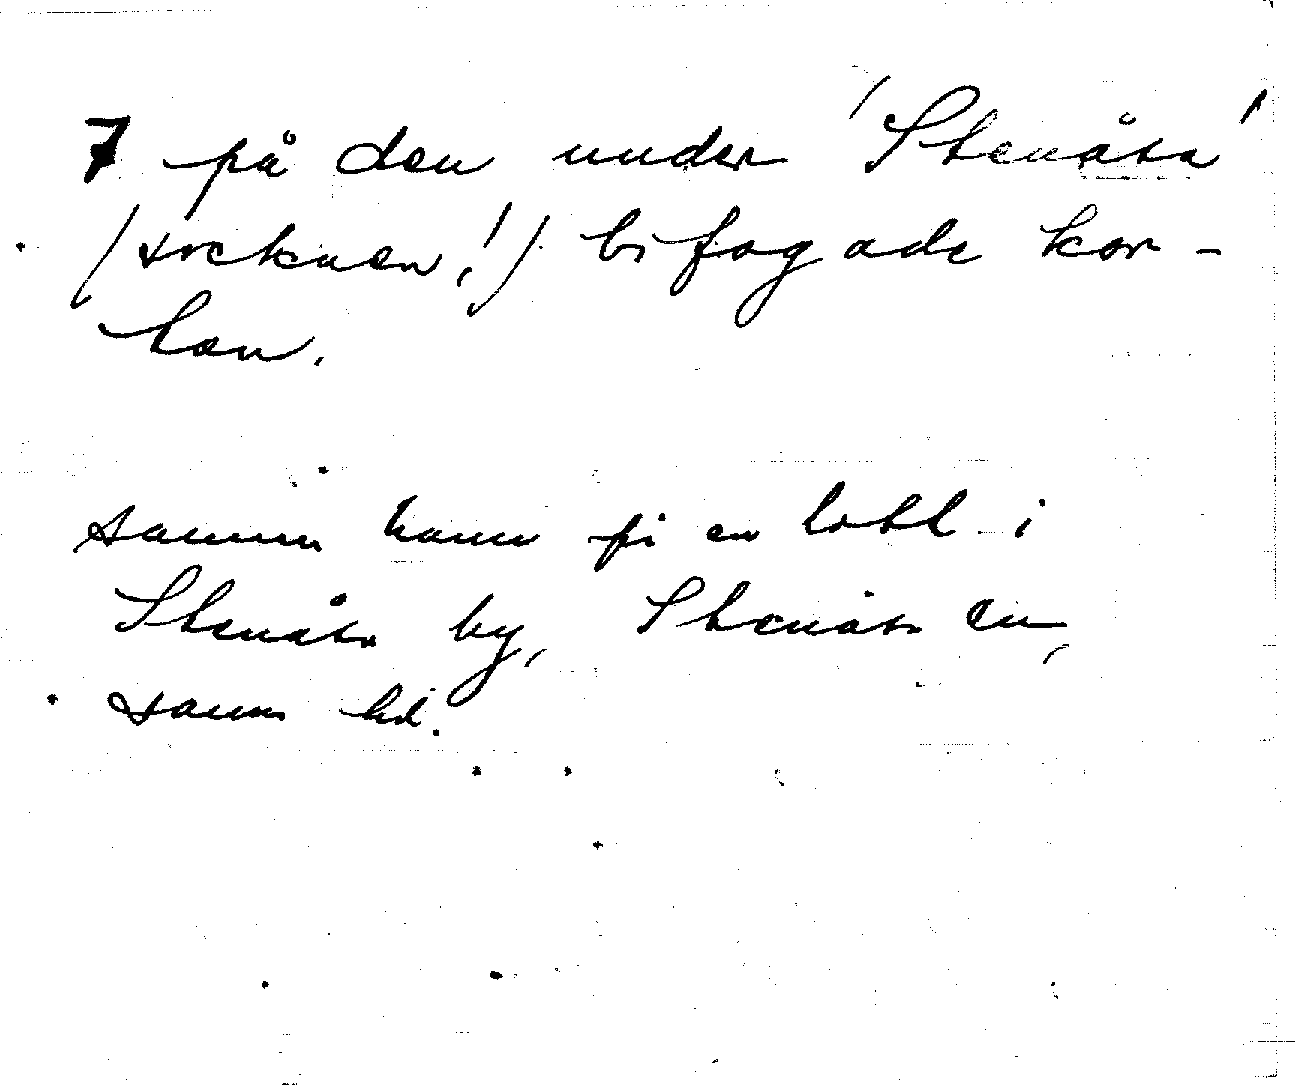 7 på den under 'Stenåsa'
(socknen!) bifogade kar-
tan.
samma namn på en lott i
Stenåsa by, Stenåsa sn,
samma hd.